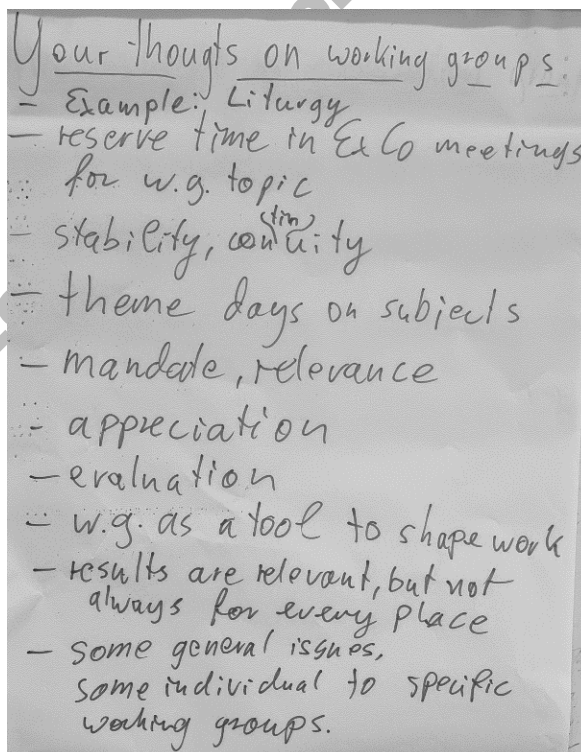 Your thougts on working groups:
- Example: Liturgy
- reserve time in ExCo meetings
for w.g. topic
- stability, con(tin)uity
- theme days on subjects
- mandate, relevance
- appreciation
- evaluation
- w.g. as a tool to shape work
- results are relevant, but not
always for every place
- some general issues,
some individual to specific
working groups.